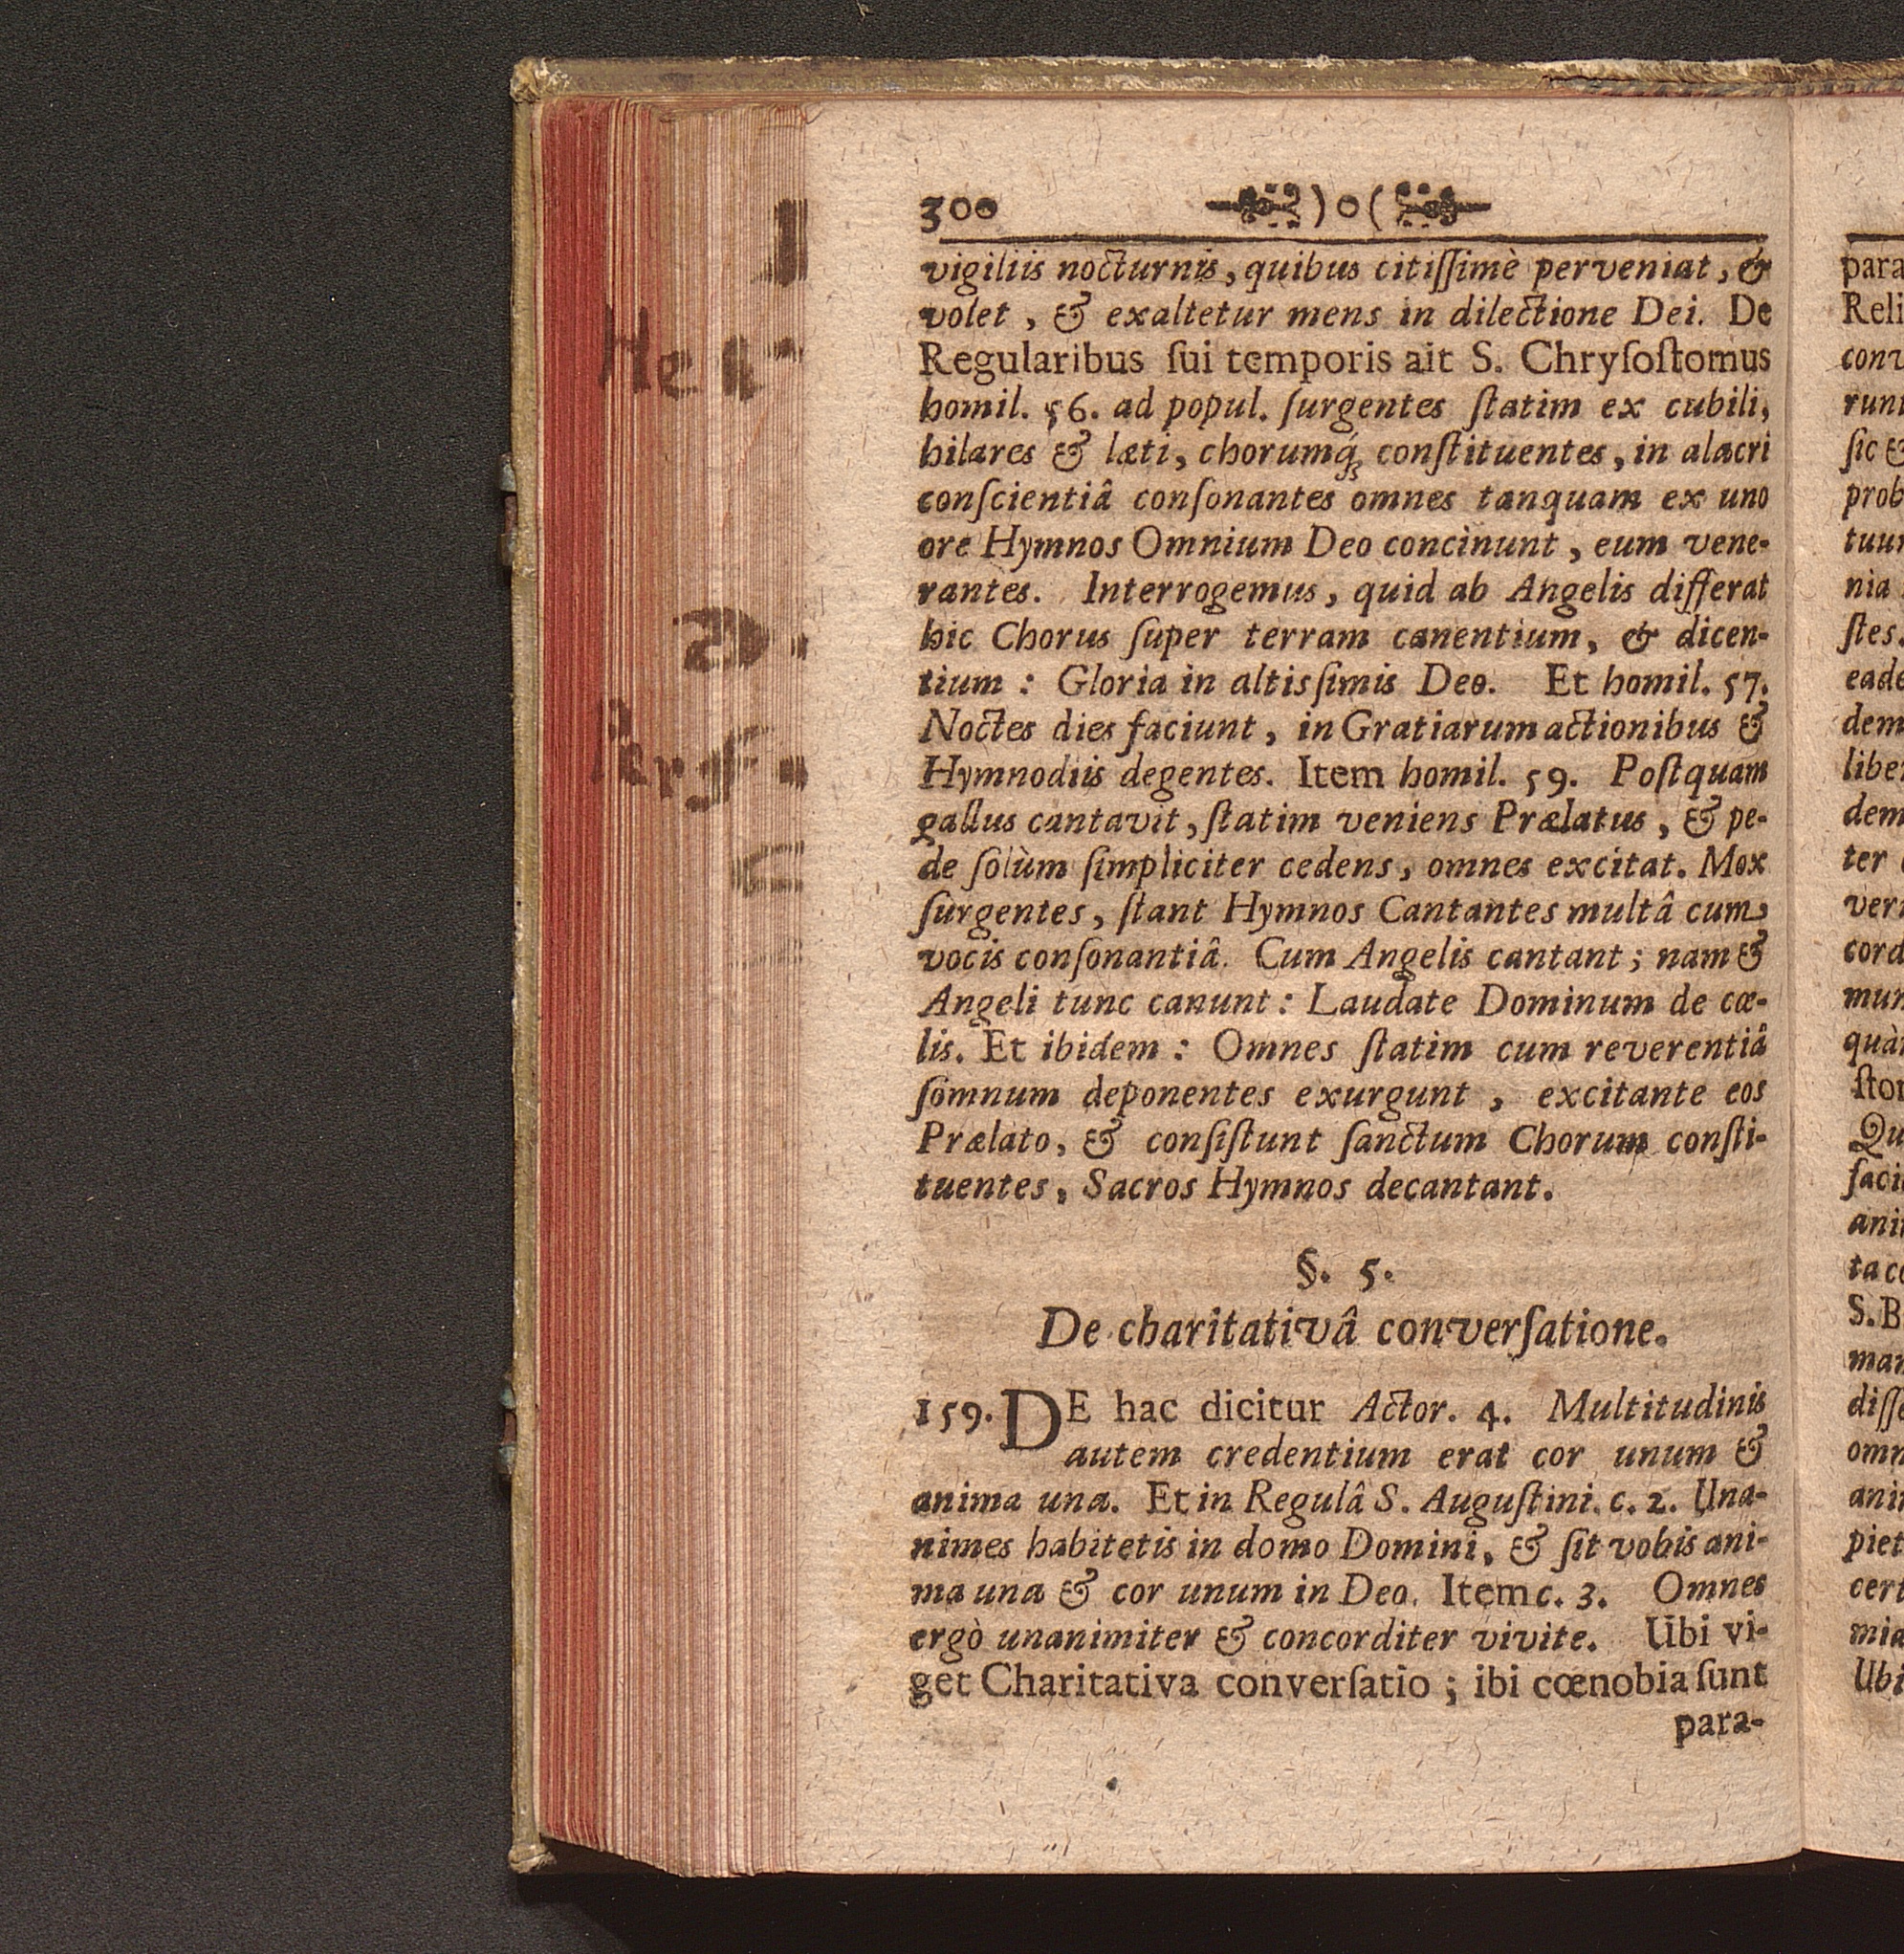 300 ) o (
vigiliis nocturnis, quibus citiſſimè perveniat, &
volet, & exaltetur mens in dilectione Dei. De
Regularibus ſui temporis ait S. Chryſoſtomus
homil. 56. ad popul. ſurgentes ſtatim ex cubili,
hilares & læti, chorumq́; conſtituentes, in alacri
conſcientiâ conſonantes omnes tanquam ex uno
ore Hymnos Omnium Deo concinunt, eum vene-
rantes. Interrogemus, quid ab Angelis differat
hic Chorus ſuper terram canentium, & dicen-
tium: Gloria in altisſimis Deo. Et homil. 57.
Noctes dies faciunt, in Gratiarum actionibus &
Hymnodiis degentes. Item homil. 59. Poſtquam
gallus cantavit, ſtatim veniens Prælatus, & pe-
de ſolùm ſimpliciter cedens, omnes excitat. Mox
ſurgentes, ſtant Hymnos Cantantes multâ cum
vocis conſonantiâ. Cum Angelis cantant; nam &
Angeli tunc canunt: Laudate Dominum de cœ-
lis. Et ibidem: Omnes ſtatim cum reverentiâ
ſomnum deponentes exurgunt, excitante eos
Prælato, & conſiſtunt ſanctum Chorum conſti-
tuentes, Sacros Hymnos decantant.
§. 5.
De charitativâ converſatione.
159. DE hac dicitur Actor. 4. Multitudinis
autem credentium erat cor unum &
anima una. Et in Regulâ S. Auguſtini. c. 2. Una-
nimes habitetis in domo Domini, & ſit vobis ani-
ma una & cor unum in Deo. Item c. 3. Omnes
ergò unanimiter & concorditer vivite. Ubi vi-
get Charitativa converſatio; ibi cœnobia ſunt
para-